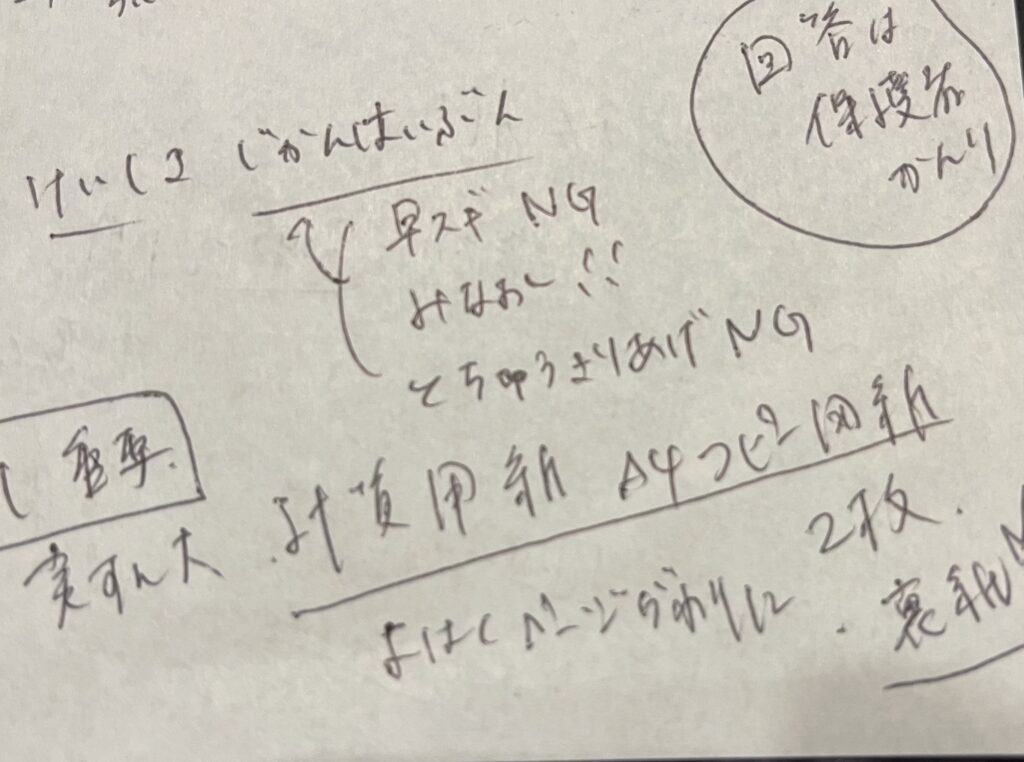 回答は
保護者
かんり
けいしき じかんはいぶん
早スギ NG
みなおし!!
とちゅうきりあげ NG
し 重要.
実すん大
計算用紙 A4コピー用紙
2枚.
よはくページがわりに
裏紙